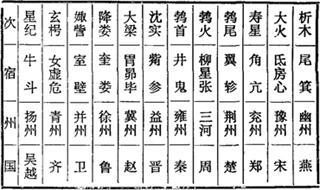 次 星纪 玄枵 娵訾 降娄 大梁 沈实 鹑首 鹑火 鹑尾 寿星 大火 析木
宿 牛斗 女虚危 室壁 奎娄 胃昴毕 觜参 井鬼 柳星张 翼轸 角亢 氐房心 尾箕
州 扬州 青州 并州 徐州 冀州 益州 雍州 三河 荆州 兖州 豫州 幽州
国 吴越 齐 卫 鲁 赵 晋 秦 周 楚 郑 宋 燕